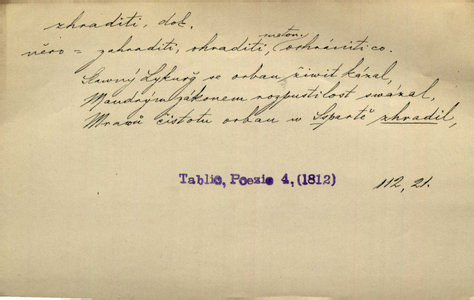 zhraditi, dok.
něco = zahraditi, ohraditi, meton. ochrániti co.
Slawný Lykurg se orbau žiwit kázal,
Maudrým zákonem rozpustilost swázal,
Mrawů čistotu orbau w Spartě zhradil,
Tablic, Poezie 4, (1812) 112, 21.